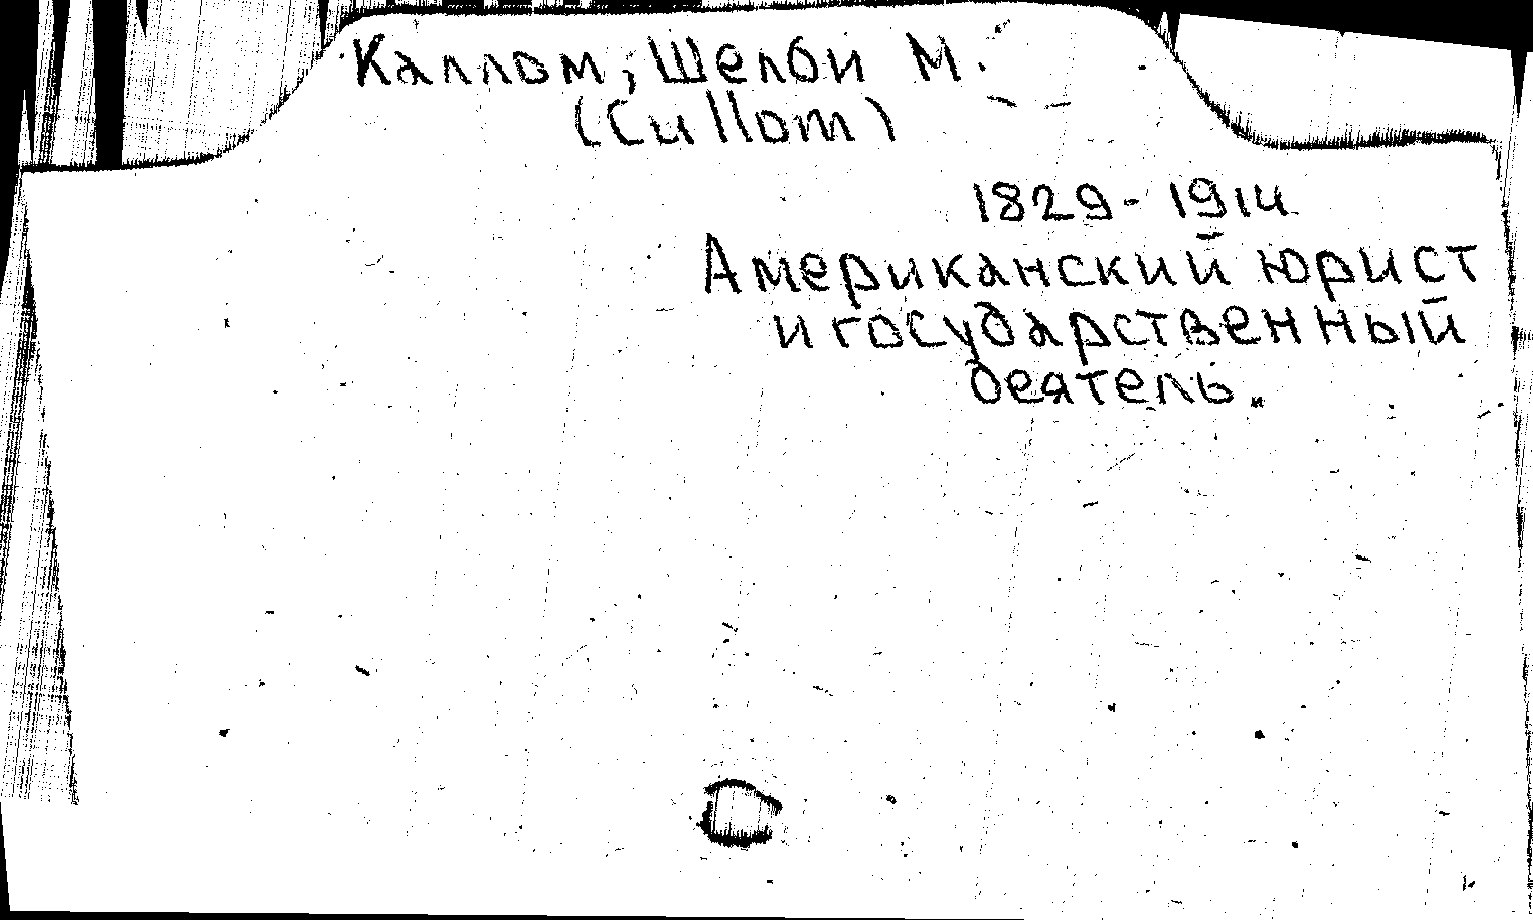 Каллом, Шелби М.
(Cullom)
1829-1914
Американский юрист
и государственный
деятель.